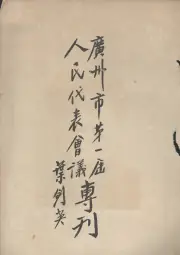 廣州市第一屆
人民代表會議
專刊
葉劍英